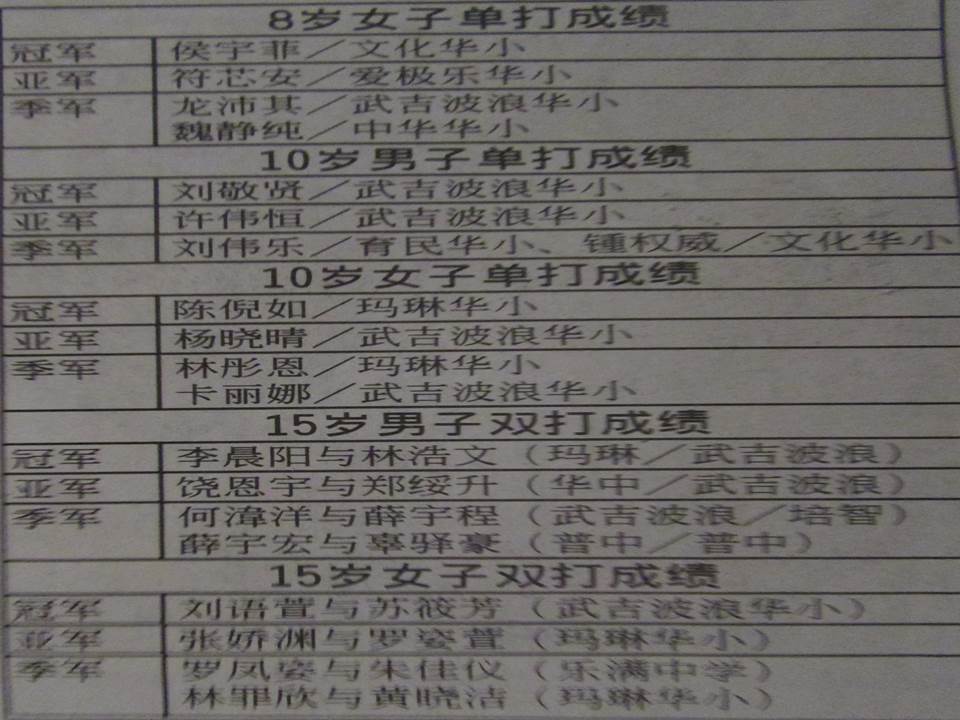 8岁女子单打成绩
冠军 侯宇菲／文化华小
亚军 符芯安／爱极乐华小
季军 龙沛其／武吉波浪华小
魏静纯／中华华小
10岁男子单打成绩
冠军 刘敬贤／武吉波浪华小
亚军 许伟恒／武吉波浪华小
季军 刘伟乐／育民华小、锺权威／文化华小
10岁女子单打成绩
冠军 陈倪如／玛琳华小
亚军 杨晓晴／武吉波浪华小
季军 林彤恩／玛琳华小
卡丽娜／武吉波浪华小
15岁男子双打成绩
冠军 李晨阳与林浩文（玛琳／武吉波浪）
亚军 饶恩宇与郑绥升（华中／武吉波浪）
季军 何湋洋与薛宇程（武吉波浪／培智）
薛宇宏与辜驿豪（普中／普中）
15岁女子双打成绩
冠军 刘语萱与苏筱芳（武吉波浪华小）
亚军 张娇渊与罗姿萱（玛琳华小）
季军 罗凤姿与朱佳仪（乐满中学）
林罪欣与黄晓洁（玛琳华小）